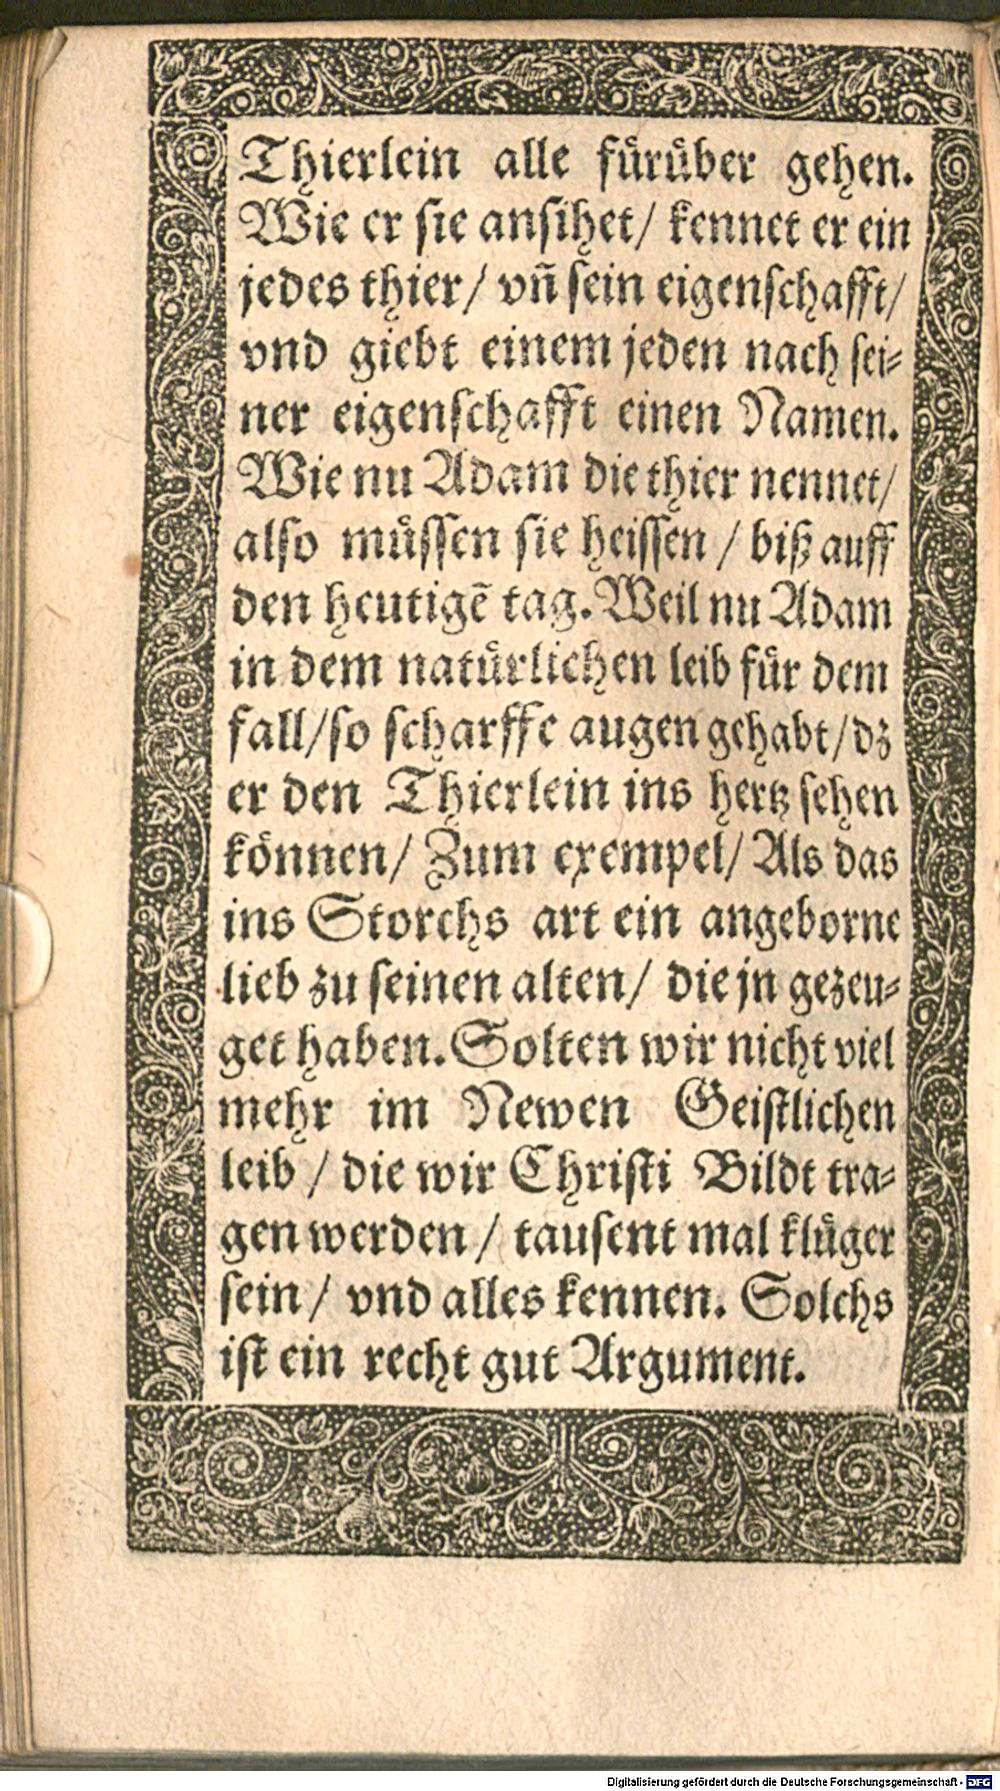 Thierlein alle fuͤruͤber gehen.
Wie er ſie anſihet/ kennet er ein
jedes thier/ vñ ſein eigenſchafft/
vnd giebt einem jeden nach ſei⸗
ner eigenſchafft einen Namen.
Wie nu Adam die thier nennet/
alſo muͤſſen ſie heiſſen / biß auff
den heutigẽ tag. Weil nu Adam
in dem natuͤrlichen leib fuͤr dem
fall/ſo ſcharffe augen gehabt/dz
er den Thierlein ins hertz ſehen
koͤnnen/ Zum exempel/ Als das
ins Storchs art ein angeborne
lieb zu ſeinen alten/ die jn gezeu⸗
get haben. Solten wir nicht viel
mehr im Newen Geiſtlichen
leib / die wir Chriſti Bildt tra⸗
gen werden / tauſent mal kluͤger
ſein / vnd alles kennen. Solchs
iſt ein recht gut Argument.
Digitalisierung gefördert durch die Deutsche Forschungsgemeinschaft - DFG